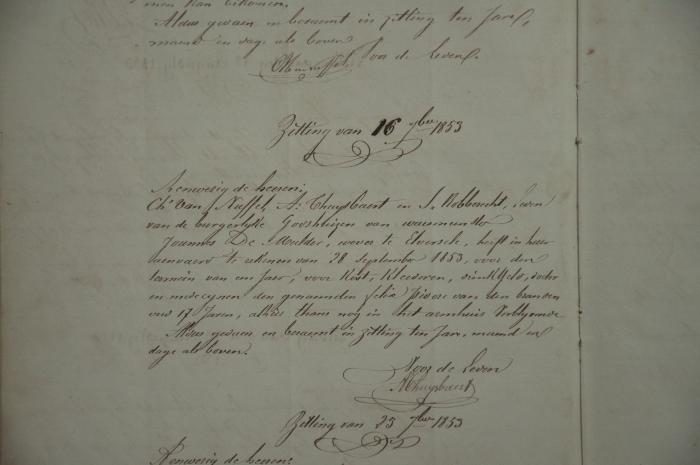 Aldus gedaen en beraemt in zitting ten Jare,
maand en dage als boven.
Voor de Leden.
Zitting van 16 7bre 1853
Aenwezig de heeren:
Ch. Van Nuffel, A. Thuysbaert en J. Robberecht, Leden
van de burgerlyke Godshuizen van
Joannes De Mulder, wever te Elversele, heeft in huer
aenvaerd te rekenen van 28 September 1853, voor den
termein van een Jaer, voor Kost, Kleederen, drinkgeld, doctor
en medecynen den genaemden van den branden
oud 17 Jaren, alhier thans nog in het armhuis Verblyvende
Aldus gedaen en beraemt in zitting ten Jare, maand en
dage als boven.
Voor de Leden
AThuysbaert
Zitting van 23 7bre 1853
Aenwezig de heeren: